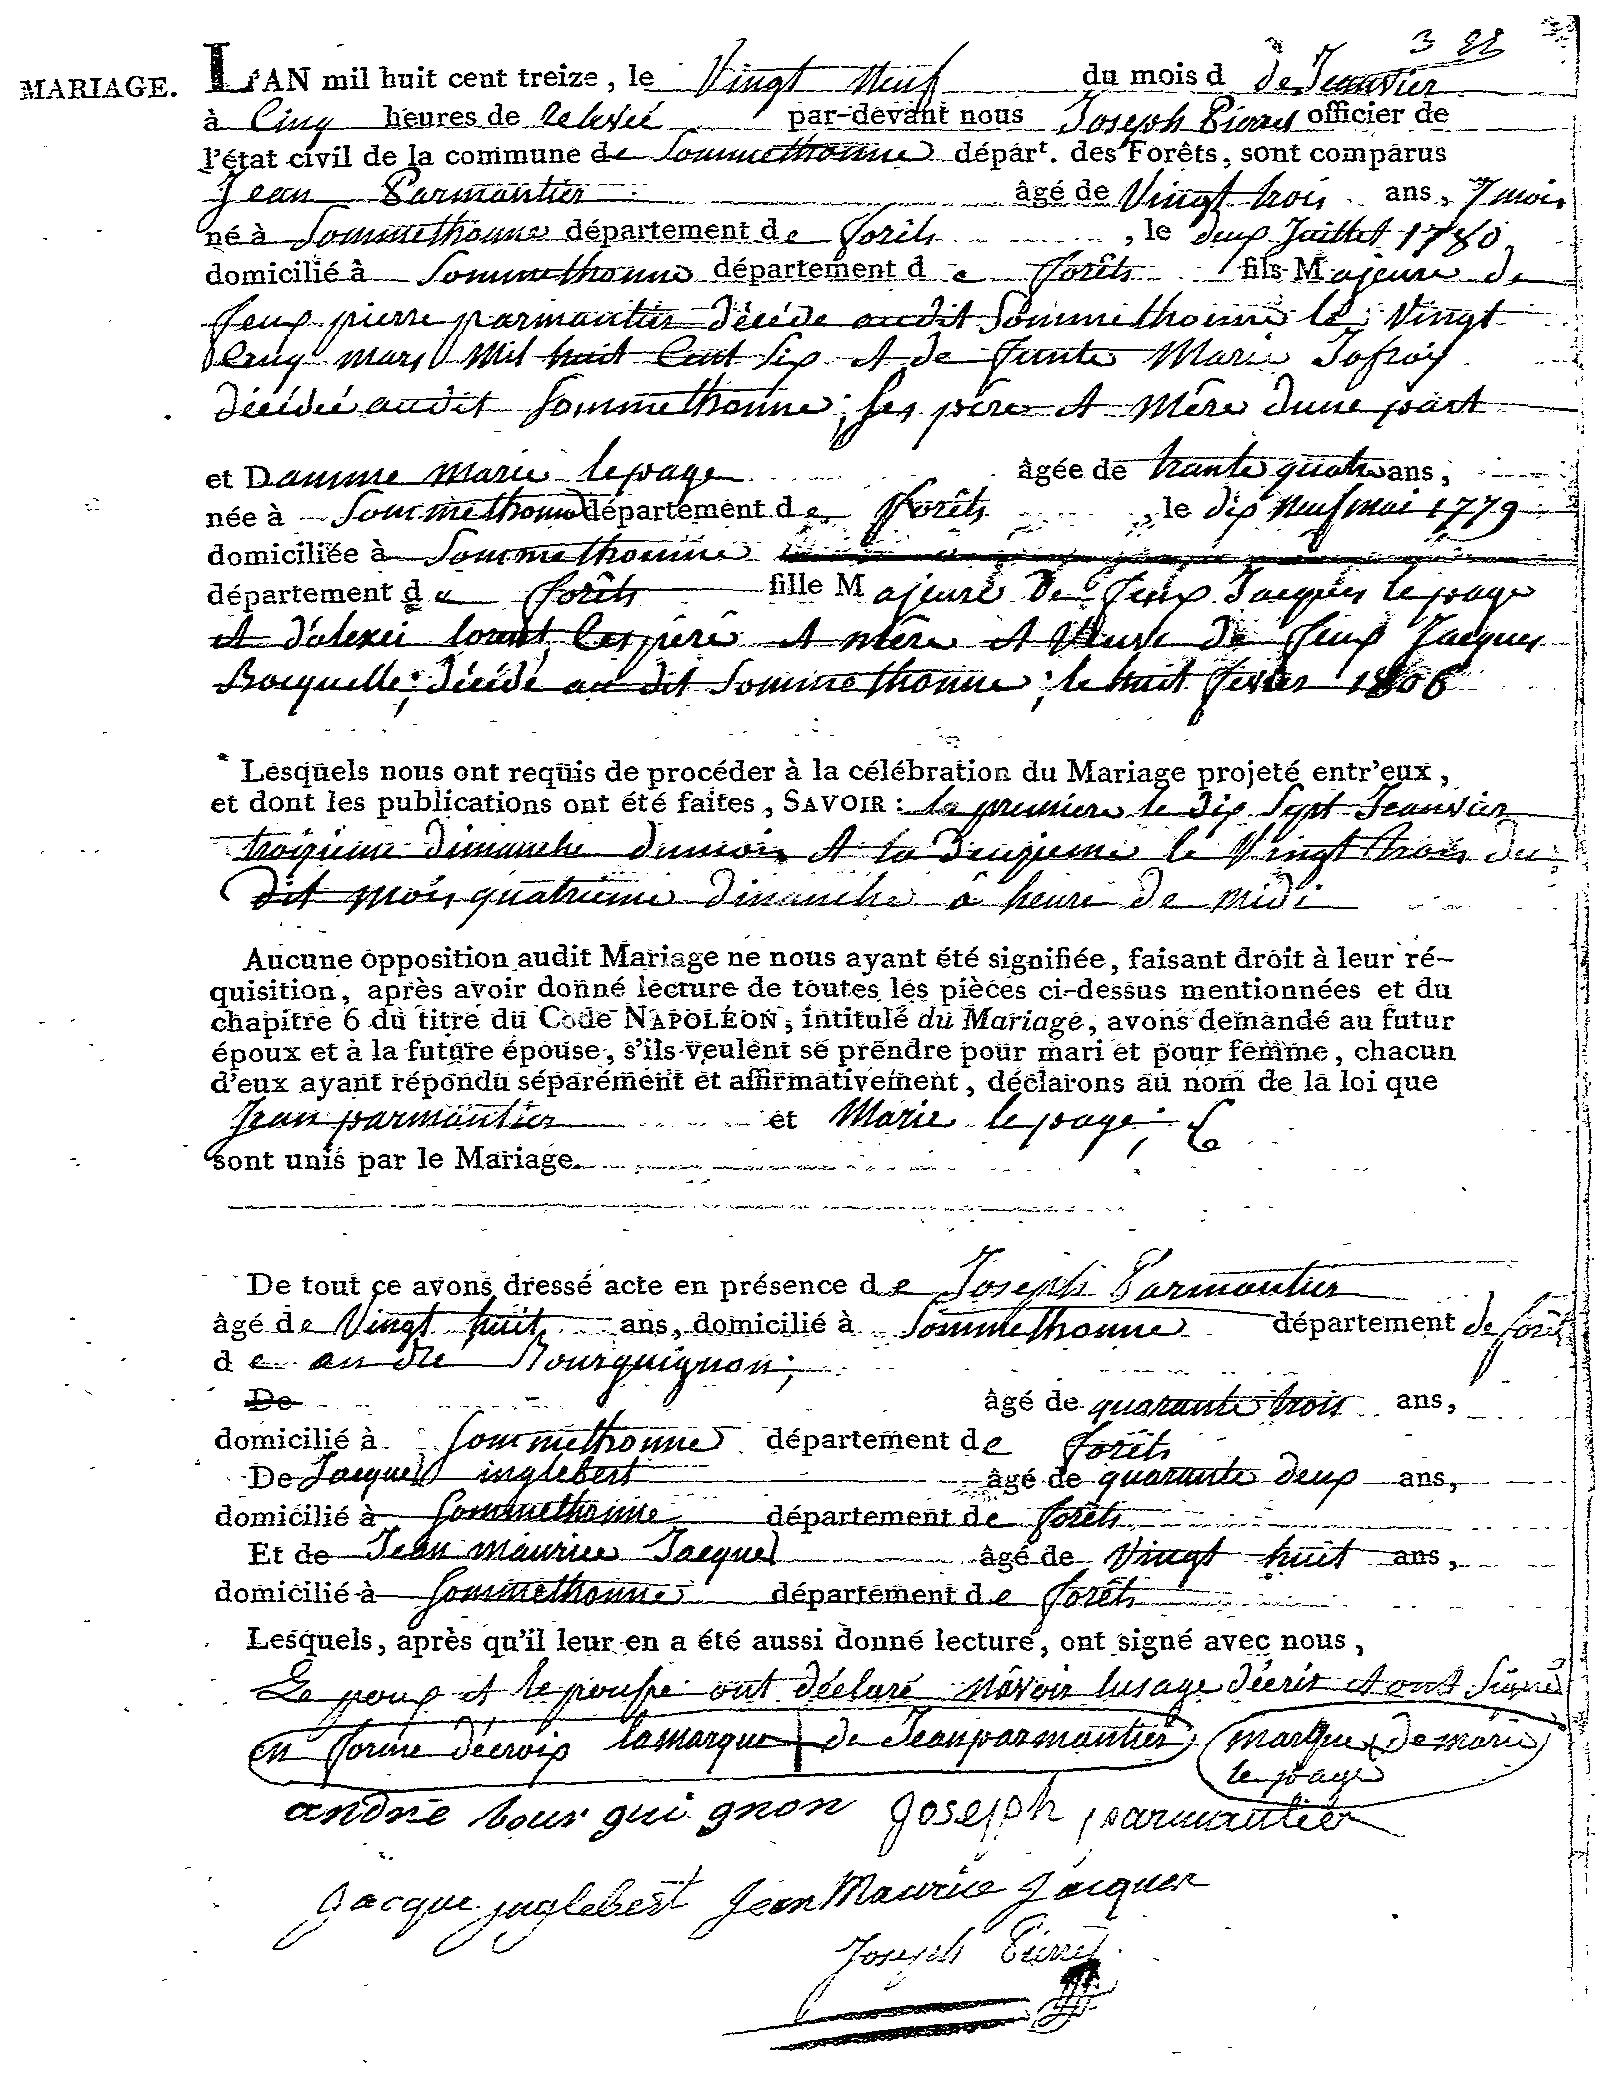 3 22
MARIAGE. L'AN mil huit cent treize, le Vingt Neuf du mois d de Jeanvier
à Cinq heures de relevéé par-devant nous Joseph Pierret officier de
l'état civil de la commune de Sommethonne départ. des Forêts, sont comparus
Jean Parmantier âgé de Vingt trois ans, 7 mois
né à Sommethonne département de forêts, le deux Juillet 1780
domicilié à Sommethonne département d e forêts fils Majeure de
feux pierre parmantier décéde audit Sommethonne le Vingt
Cinq mars Mil huit Cent Six et de funte Marie Jofroy
décédéé audit Sommethonne; Ses père et Mère dune part
et Damme marie lepage âgée de trante quatre ans,
née à Sommethonne département de forêts, le dix neuf mai 1779
domiciliée à Sommethonne
département d e forêts fille M ajeure De feux Jacques lepage
et d'alexei lorent Ces père et mère et Veuve de feux Jacques
Bocquelle; décédé au dit Sommethonne; le huit fevrier 1806
Lesquels nous ont requis de procéder à la célébration du Mariage projeté entr'eux,
et dont les publications ont été faites, SAVOIR: la premiere le Dix Sept Jeanvier
troizieme dimanche dumois et la deuzieme le Vingt trois du
dit mois quatrieme dimanche a heure de midi
Aucune opposition audit Mariage ne nous ayant été signifiée, faisant droit à leur ré-
quisition, après avoir donné lecture de toutes les pièces ci-dessus mentionnées et du
chapitre 6 du titre du Code NAPOLÉON, intitulé du Mariage, avons demandé au futur
époux et à la future épouse, s'ils veulent se prendre pour mari et pour femme, chacun
d'eux ayant répondu séparément et affirmativement, déclarons au nom de la loi que
Jean parmantier et Marie le page;
sont unis par le Mariage.
De tout ce avons dressé acte en présence de Joseph Parmantier
âgé de Vingt huit ans, domicilié à Sommethonne département de forêts
d e andré Bourguignon;
De âgé de quarante trois ans,
domicilié à Sommethonne département de forêts
De Jacques inglebert âgé de quarante deux ans,
domicilié à Sommethonne département de forêts
Et de Jean maurice Jacques âgé de Vingt huit ans,
domicilié à Sommethonne département de forêts
Lesquels, après qu'il leur en a été aussi donné lecture, ont signé avec nous,
Le poux et lepouse ont déclaré navoir lusage décrir et ont Signé
en forme décroix lamarque de Jean parmantier marque de marie
le page
andre bour gui gnon Joseph parmantier
Jacque jnglebert Jean Maurice Jacques
Joseph Pierret